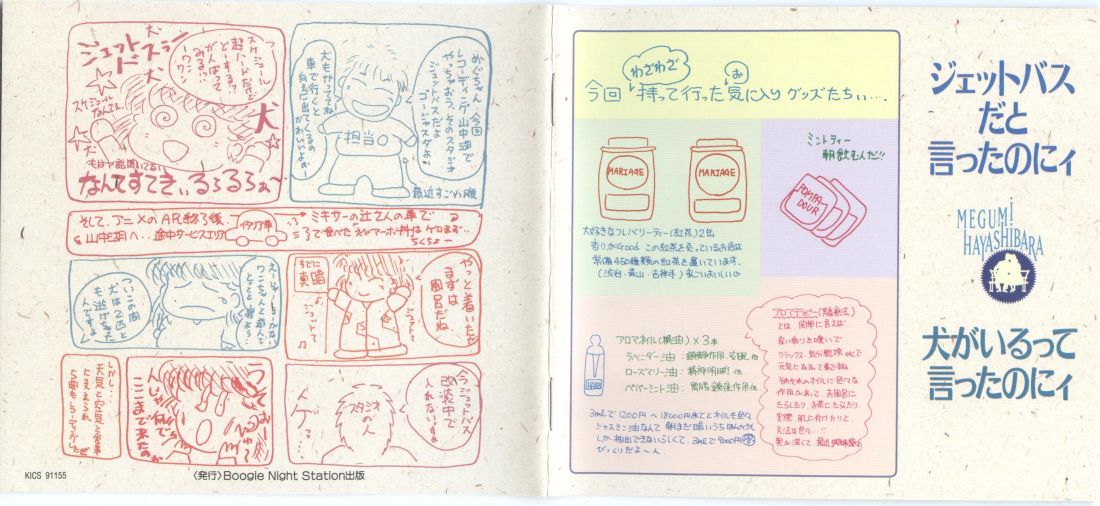 ジェットバス
だと
言ったのにィ
MEGUMI
HAYASHIBARA
犬がいるって
言ったのにィ
わざわざ
お
今回 持って行った気に入り グッズたちぃ…。
MARIAGE
MARIAGE
大好きなフレバリーティー(紅茶)2缶
香りがGood この紅茶を売っているお店は
常備450種類の紅茶を置いています。
(渋谷・青山・吉祥寺)
ミントティー
朝飲むんだ!!
POMPA
DOUR
アロマオイル(精油)×3本
ラベンダー油:鎮静作用・安眠 他
ローズマリー油:精神明晰 他
ペパーミント油:胃腸鎮痙作用 他
3mlで1200円〜18000円までとオイルも色々
ジャスミン油なんて朝まだ暗いうちほんの少し
しか抽出できないらしくて、3mlで9000円
びっくりだよ〜ん
アロマテラピー(芳香療法)
とは 簡単に言えば
良い香りを嗅いで
リラックス・気分転換etcで
元気になるって事だけど
めぐちゃん!今回
レコーディング山中湖で
やっちゃおう。そのスタジオ
ジェットバスだよ
ゴージャスだよ
犬もかってね
車で行くと
かわいいよぉー
担当〇
最近すごい腹
スケジュール
超ハードだけど
どーする?
がんばって
みる!?
ワンワン
犬
ジェットバスラ〜
ド
犬
犬
スケジュール
なんてっ
もはや話聞いてない
なんてすてきぃるるるるぁ〜
そして、アニメのAR終了後、ミキサーの辻さんの車で
山中湖へ…途中サービスエリア
イタリア車
ちくしょー
やっと着いたか
まずは
風呂だね
すでに
真暗
ジェットって
ついこの間
犬は2匹と
も逃げちゃた
んですよ
今ジェットバス
改装中で
入れないっすよ
スタジオ
の人
ゲ
ここまで来たのよ
しかし…
天気と空気と食事
にまぎれ
5曲もレコーディングしたぜ
KICS 91155
〈発行〉Boogie Night Station出版